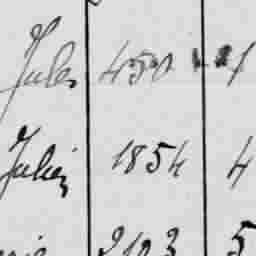 Jules 450 1
Julien 1854 4
2103 5